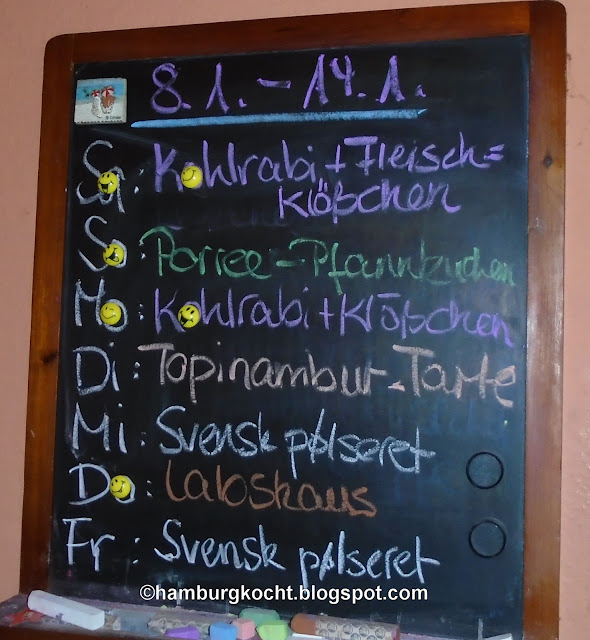 8.1. - 14.1.
Sa: Kohlrabi + Fleisch=
Klößchen
So: Porree-Pfannkuchen
Mo: Kohlrabi + Klößchen
Di: Topinambur-Tarte
Mi: Svensk pølseret
Do: Labskaus
Fr: Svensk pølseret
©hamburgkocht.blogspot.com